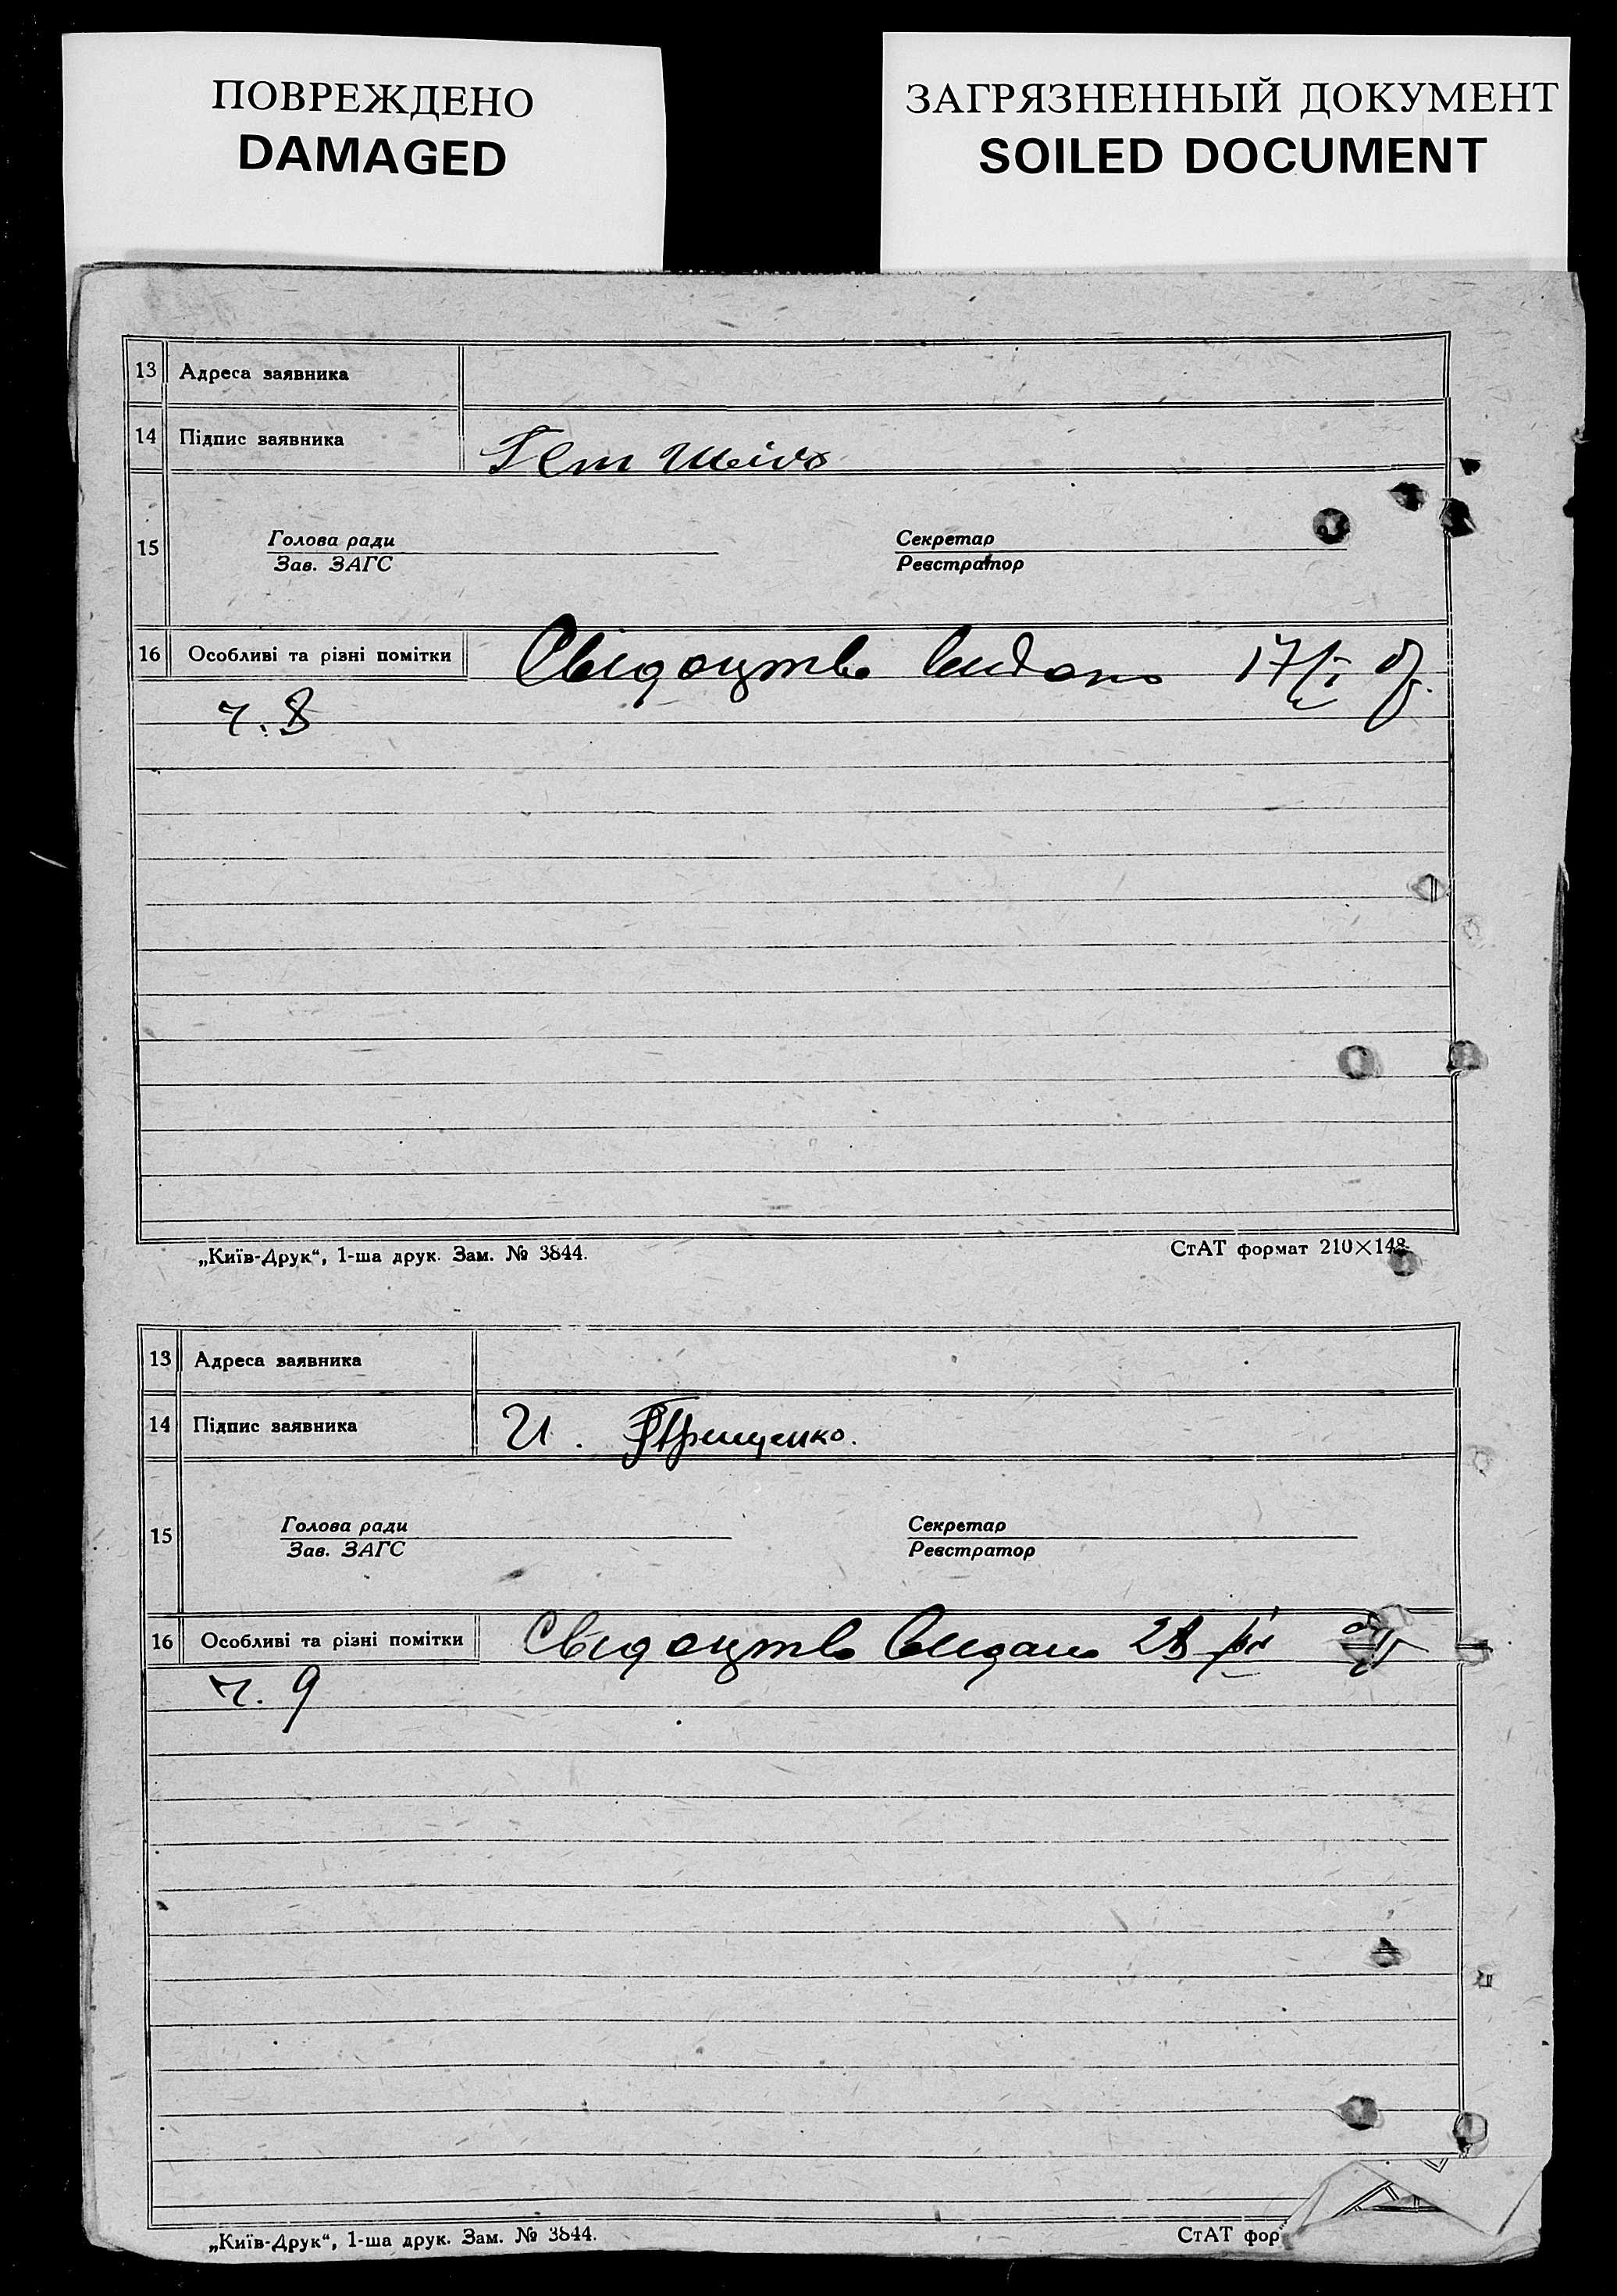 ПОВРЕЖДЕНО
DAMAGED
ЗАГРЯЗНЕННЫЙ ДОКУМЕНТ
SOILED DOCUMENT
13 Адреса заявника
14 Підпис заявника
15 Голова ради Секретар
Зав. ЗАГС Реєстратор
16 Особливі та різні помітки Свідоцтво видано 17/I
ч. 8
„Київ-Друк“, 1-ша друк. Зам. № 3844. СтАТ формат 210×148
13 Адреса заявника
14 Підпис заявника И. Грищенко.
15 Голова ради Секретар
Зав. ЗАГС Реєстратор
16 Особливі та різні помітки Свідоцтво видано
ч. 9
„Київ-Друк“, 1-ша друк. Зам. № 3844. СтАТ фор